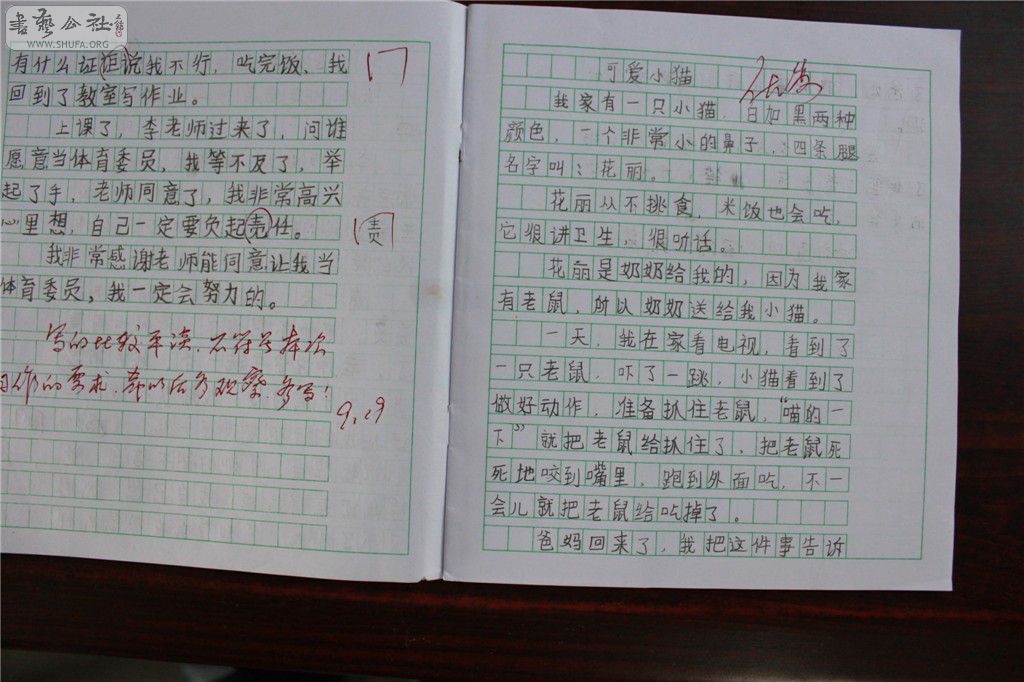 書藝公社
WWW.SHUFA.ORG
有什么证 说我不行，吃完饭、我
回到了教室写作业。
上课了，李老师过来了，问谁
愿意当体育委员，我等不及了，举
起了手，老师同意了，我非常高兴
心里想，自己一定要负起责任。
责
我非常感谢老师能同意让我当
体育委员，我一定会努力的。
写的比较平淡，不符合本次
习作的要求，希以后多观察，多写！
9.29
可爱小猫
我家有一只小猫，白加黑两种
颜色，一个非常小的鼻子，四条腿
名字叫：花丽。
花丽从不挑食，米饭也会吃，
它狠讲卫生，很听话。
花丽是奶奶给我的，因为我家
有老鼠，所以奶奶送给我小猫。
一天，我在家看电视，看到了
一只老鼠，吓了一跳，小猫看到了
做好动作，准备抓住老鼠，“喵的一
下”就把老鼠给抓住了，把老鼠死
死地咬到嘴里，跑到外面吃，不一
会儿就把老鼠给吃掉了。
爸妈回来了，我把这件事告诉